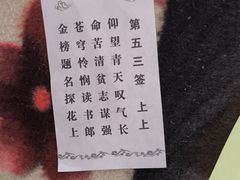 第五三签 上上
仰望青天叹气长
命苦清贫志谋强
苍穹怜悯读书郎
金榜题名探花上